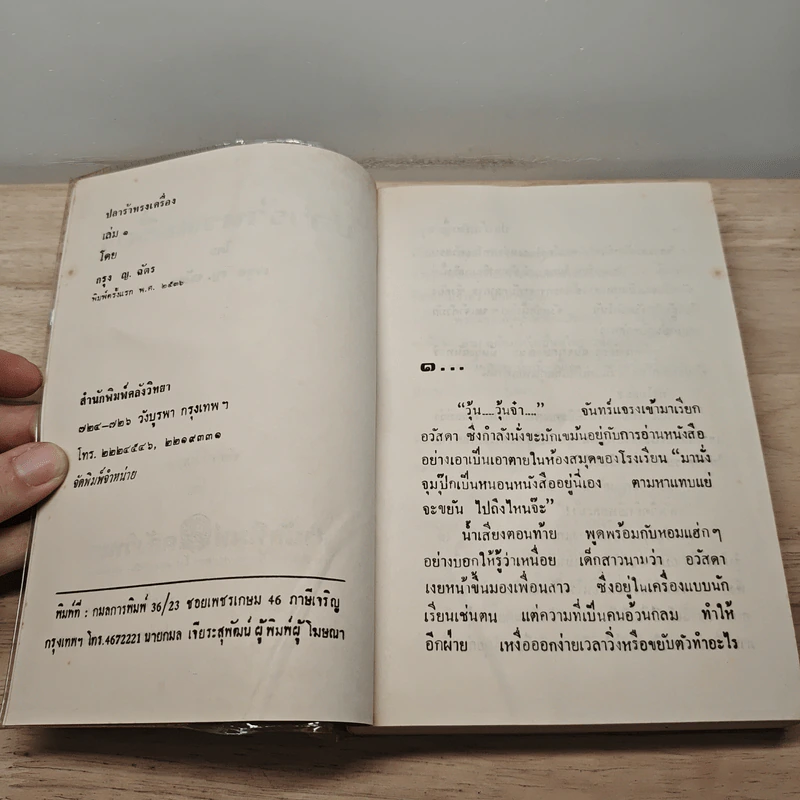 ปลาร้าทรงเครื่อง
เล่ม ๑
โดย
กรุง ญ. ฉัตร
พิมพ์ครั้งแรก พ.ศ. ๒๕๓๖
สำนักพิมพ์คลังวิทยา
๗๒๔-๗๒๖ วังบูรพา กรุงเทพฯ
โทร. ๒๒๒๔๕๔๖, ๒๒๑๙๓๓๑
จัดพิมพ์จำหน่าย
พิมพ์ที่ : กมลการพิมพ์ 36/23 ซอยเพชรเกษม 46 ภาษีเจริญ
กรุงเทพฯ โทร.4672221 นายกมล เจียระสุพัฒน์ ผู้พิมพ์ผู้โฆษณา
๑...
“วุ้น....วุ้นจ๋า....” จันทร์แจรงเข้ามาเรียก
อวัสดา ซึ่งกำลังนั่งขะมักเขม้นอยู่กับการอ่านหนังสือ
อย่างเอาเป็นเอาตายในห้องสมุดของโรงเรียน “มานั่ง
จุมปุ๊กเป็นหนอนหนังสืออยู่นี่เอง ตามหาแทบแย่
จะขยัน ไปถึงไหนจ๊ะ”
น้ำเสียงตอนท้าย พูดพร้อมกับหอมแฮ่กๆ
อย่างบอกให้รู้ว่าเหนื่อย เด็กสาวนามว่า อวัสดา
เงยหน้าขึ้นมองเพื่อนสาว ซึ่งอยู่ในเครื่องแบบนัก
เรียนเช่นตน แต่ความที่เป็นคนอ้วนกลม ทำให้
อีกฝ่าย เหงื่อออกง่ายเวลาวิ่งหรือขยับตัวทำอะไร